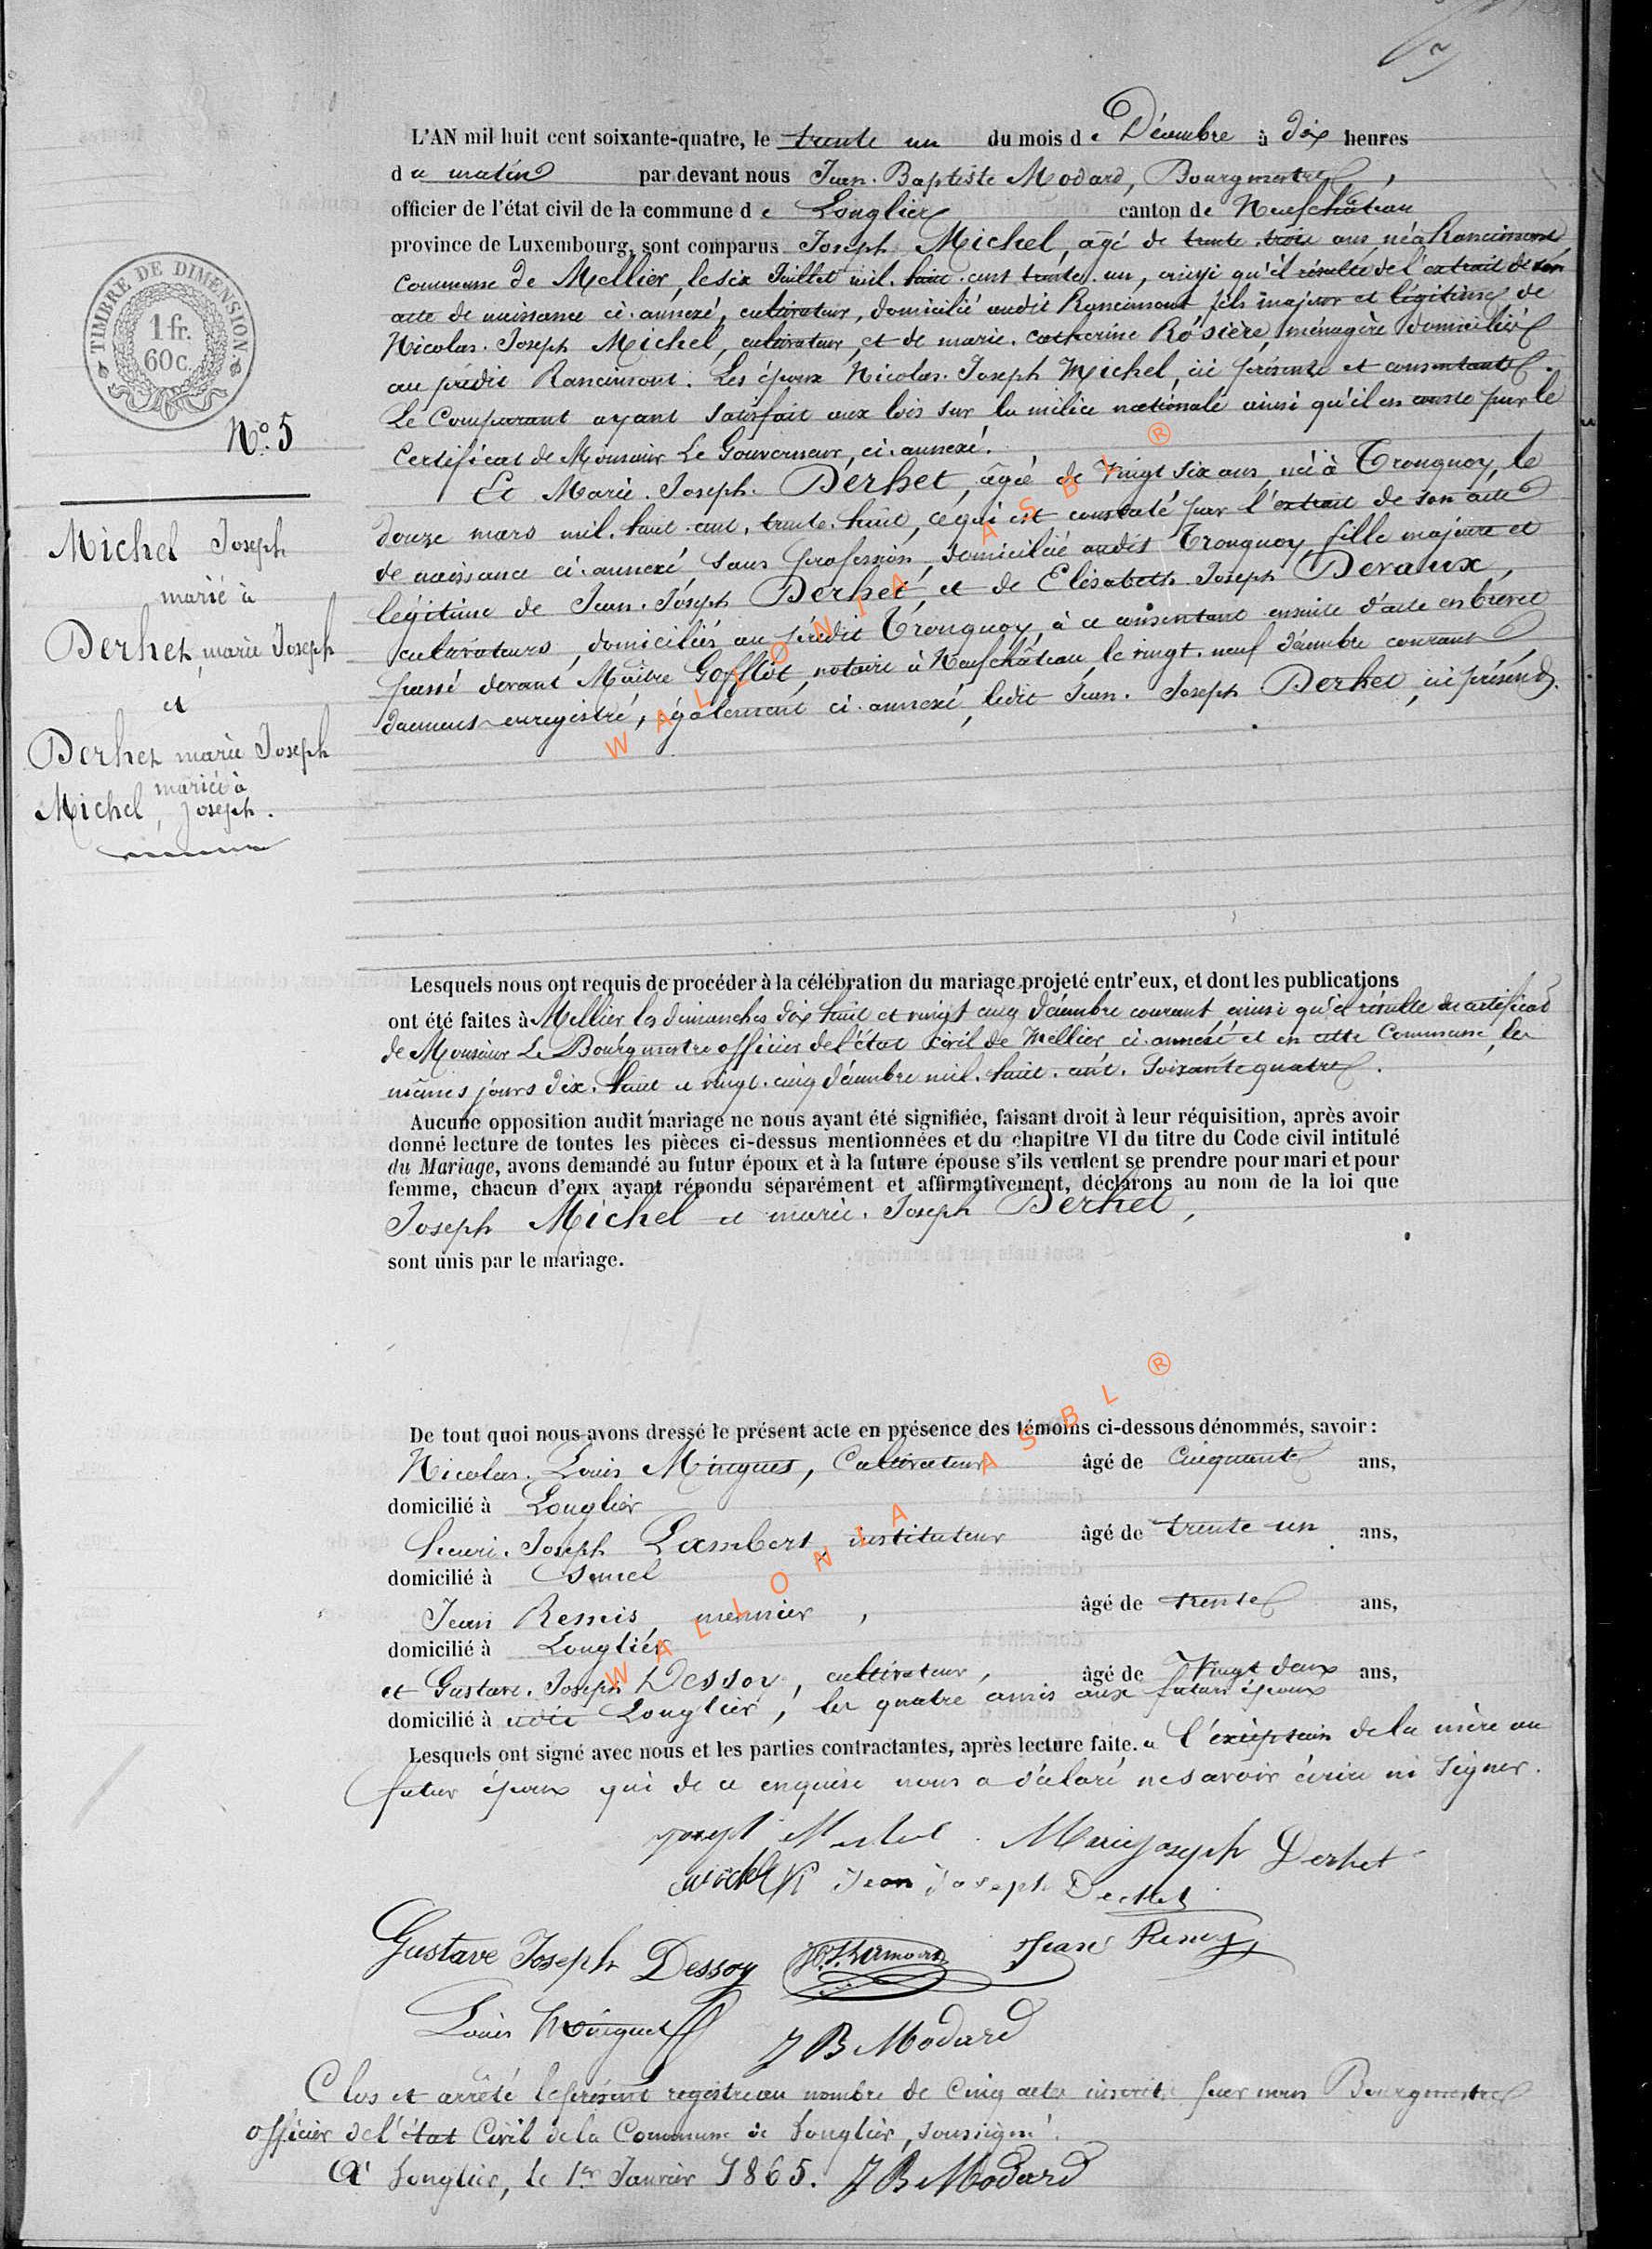 L'AN mil huit cent soixante-quatre, le trente un du mois de Décembre à dix heures
du matin par devant nous Jean-Baptiste Modard, Bourgmestre,
officier de l'état civil de la commune de Longlier canton de Neufchâteau
province de Luxembourg, sont comparus Joseph Michel, âgé de trente-trois ans, né à Rancimont
commune de Mellier, le six Juillet mil-huit-cent trente-un, ainsi qu'il résulte de l'extrait de son
acte de naissance ci-annexé, cultivateur, domicilié audit Rancimont fils majeur et légitime de
Nicolas-Joseph Michel, cultivateur, et de marie-catherine Rosière, ménagère domiciliés
au prédit Rancimont. Les époux Nicolas-Joseph Michel, ici présents et consentants.
Le Comparant ayant satisfait aux lois sur la milice nationale ainsi qu'il en conste par le
Certificat de Monsieur Le Gouverneur, ci-annexé.
Et Marie-Joseph Derhet, âgée de vingt six ans, née à Tronquoy, le
douze mars mil-huit-cent-trente-huit, ce qui est constaté par l'extrait de son acte
de naissance ci-annexé sans profession, domiciliée audit Tronquoy fille majeure et
légitime de Jean-Joseph Derhet, et de Elisabeth-Joseph Devaux,
cultivateurs, domiciliés au prédit Tronquoy, à ce consentant ensuite d'acte en brevet
passé devant Maître Gofflot, notaire à Neufchâteau le vingt-neuf décembre courant
dûment enregistré, également ci-annexé, ledit Jean-Joseph Derhet, ici présent.
TIMBRE DE DIMENSION
1 fr.
60 c.
N° 5
Michel Joseph
marié à
Derhet, marie Joseph
et
Derhet marie Joseph
mariée à
Michel, Joseph.
Lesquels nous ont requis de procéder à la célébration du mariage projeté entr'eux, et dont les publications
ont été faites à Mellier les dimanches dix huit et vingt cinq décembre courant, ainsi qu'il résulte du certificat
de Monsieur Le Bourgmestre officier de l'état civil de Mellier ci-annexé et en cette Commune, les
mêmes jours dix-huit et vingt-cinq décembre mil-huit-cent-soixante quatre.
Aucune opposition audit mariage ne nous ayant été signifiée, faisant droit à leur réquisition, après avoir
donné lecture de toutes les pièces ci-dessus mentionnées et du chapitre VI du titre du Code civil intitulé
du Mariage, avons demandé au futur époux et à la future épouse s'ils veulent se prendre pour mari et pour
femme, chacun d'eux ayant répondu séparément et affirmativement, déclarons au nom de la loi que
Joseph Michel et marie-Joseph Derhet,
sont unis par le mariage.
De tout quoi nous avons dressé le présent acte en présence des témoins ci-dessous dénommés, savoir :
Nicolas-Louis Minguet, Cultivateur âgé de Cinquante ans,
domicilié à Longlier
henri-Joseph Lambert, instituteur âgé de trente un ans,
domicilié à
Jean Remis meunier, âgé de trente ans,
domicilié à Longlier
et Gustave-Joseph Dessoy, cultivateur, âgé de Vingt deux ans,
domicilié à Longlier, les quatre amis aux futurs époux
Lesquels ont signé avec nous et les parties contractantes, après lecture faite. à l'exception de la mère au
futur époux qui de ce enquise nous a déclaré ne savoir écrire ni signer.
joseph Michel Marie joseph Derhet
Jean Joseph Derhet
Gustave Joseph Dessoy Jean Remy
Louis Minguet J B Modard
Clos et arrêté le présent registre au nombre de Cinq actes inscrits par nous Bourgmestre
officier de l'état Civil de la Commune de Longlier, soussigné.
A Longlier, le 1er Janvier 1865. J B Modard
WALLONIA ASBL ®
WALLONIA ASBL ®